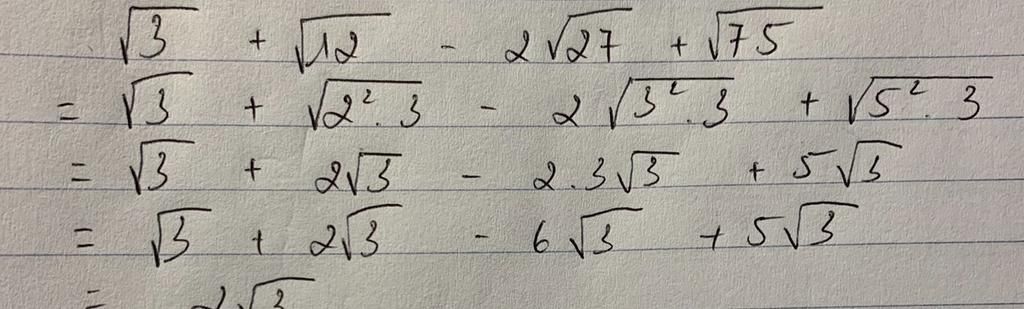 √3 + √12 - 2√27 + √75
= √3 + √(2² . 3) - 2√(3² . 3) + √(5² . 3)
= √3 + 2√3 - 2.3√3 + 5√3
= √3 + 2√3 - 6√3 + 5√3
= 2√3